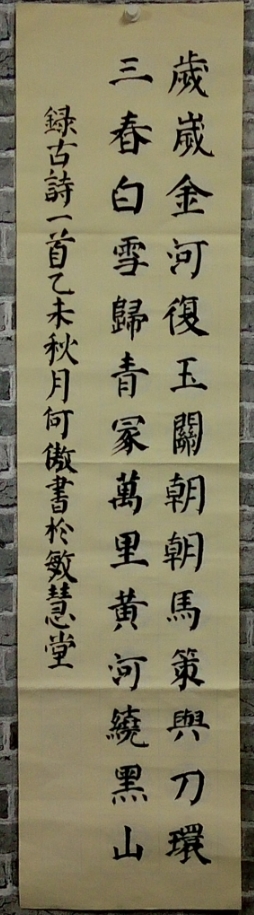 歲歲金河復玉關朝朝馬策與刀環
三春白雪歸青冢萬里黄河繞黑山
録古詩一首乙未秋月何傲書於敏慧堂